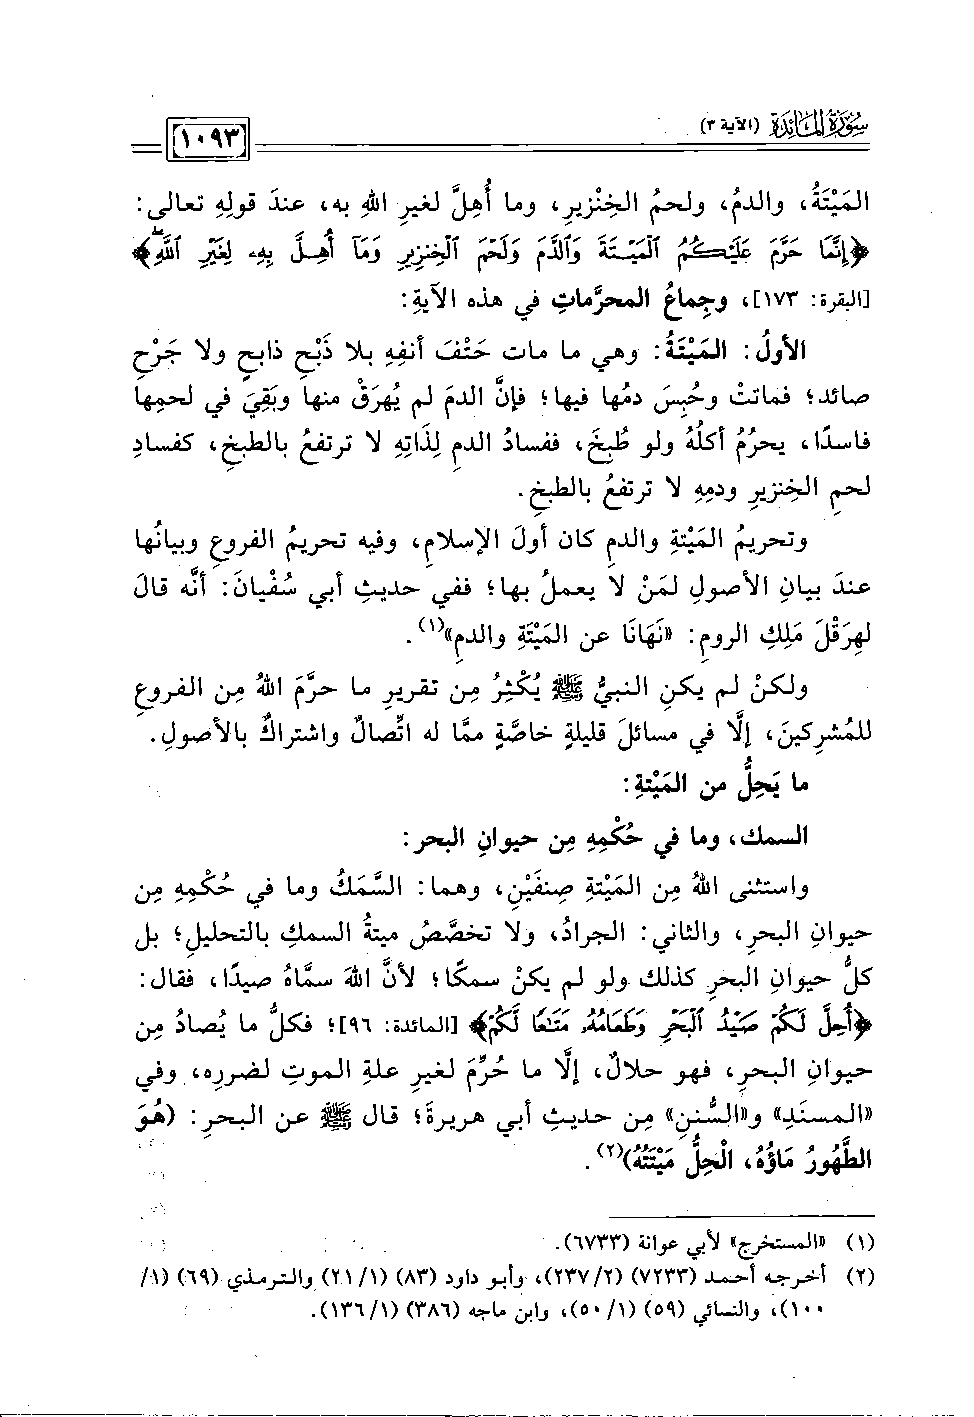 سُورَةُ المَائِدَة (الآية ٣)
١٠٩٣
المَيْتَةُ، والدمُ، ولحمُ الخِنْزيرِ، وما أُهِلَّ لغيرِ اللهِ به، عندَ قولِهِ تعالى:
﴿إِنَّمَا حَرَّمَ عَلَيْكُمُ الْمَيْتَةَ وَالدَّمَ وَلَحْمَ الْخِنزِيرِ وَمَا أُهِلَّ بِهِ لِغَيْرِ اللَّهِ﴾
[البقرة: ١٧٣]، وجِماعُ المحرَّماتِ في هذه الآيةِ:
الأولُ: المَيْتَةُ: وهي ما مات حَتْفَ أنفِهِ بلا ذَبْحِ ذابحٍ ولا جَرْحِ
صائد؛ فماتتْ وحُبِسَ دمُها فيها؛ فإنَّ الدمَ لم يُهرَقْ منها وبَقِيَ في لحمِها
فاسدًا، يحرُمُ أكلُهُ ولو طُبِخَ، ففسادُ الدمِ لِذَاتِهِ لا ترتفعُ بالطبخِ، كفسادِ
لحمِ الخنزيرِ ودمِهِ لا ترتفعُ بالطبخِ.
وتحريمُ المَيْتةِ والدمِ كان أولَ الإسلامِ، وفيه تحريمُ الفروعِ وبيانُها
عندَ بيانِ الأصولِ لمَنْ لا يعملُ بها؛ ففي حديثِ أبي سُفْيانَ: أنَّه قالَ
لهِرَقْلَ مَلِكِ الرومِ: «نَهَانَا عن المَيْتَةِ والدمِ»(١).
ولكنْ لم يكنِ النبيُّ ﷺ يُكْثِرُ مِن تقريرِ ما حرَّمَ اللهُ مِن الفروعِ
للمُشرِكينَ، إلَّا في مسائلَ قليلةٍ خاصَّةٍ ممَّا له اتِّصالٌ واشتراكٌ بالأصولِ.
ما يَحِلُّ من المَيْتةِ:
السمك، وما في حُكْمِهِ مِن حيوانِ البحر:
واستثنى اللهُ مِن المَيْتةِ صِنفَيْنِ، وهما: السَّمَكُ وما في حُكْمِهِ مِن
حيوانِ البحرِ، والثاني: الجرادُ، ولا تخصَّصُ ميتةُ السمكِ بالتحليلِ؛ بل
كلُّ حيوانِ البحرِ كذلك ولو لم يكنْ سمكًا؛ لأنَّ اللهَ سمَّاهُ صيدًا، فقال:
﴿أُحِلَّ لَكُمْ صَيْدُ الْبَحْرِ وَطَعَامُهُ مَتَاعًا لَكُمْ﴾ [المائدة: ٩٦]؛ فكلُّ ما يُصادُ مِن
حيوانِ البحرِ، فهو حلالٌ، إلَّا ما حُرِّمَ لغيرِ علةِ الموتِ لضررِه، وفي
«المسنَدِ» و«السُّننِ» مِن حديثِ أبي هريرةَ؛ قال ﷺ عن البحرِ: (هُوَ
الطَّهُورُ مَاؤُهُ، الْحِلُّ مَيْتَتُهُ)(٢).
(١) «المستخرج» لأبي عوانة (٦٧٣٣).
(٢) أخرجه أحمد (٧٢٣٣) (٢/٢٣٧)، وأبو داود (٨٣) (١/٢١) والترمذي (٦٩) (١/
١٠٠)، والنسائي (٥٩) (١/٥٠)، وابن ماجه (٣٨٦) (١/١٣٦).